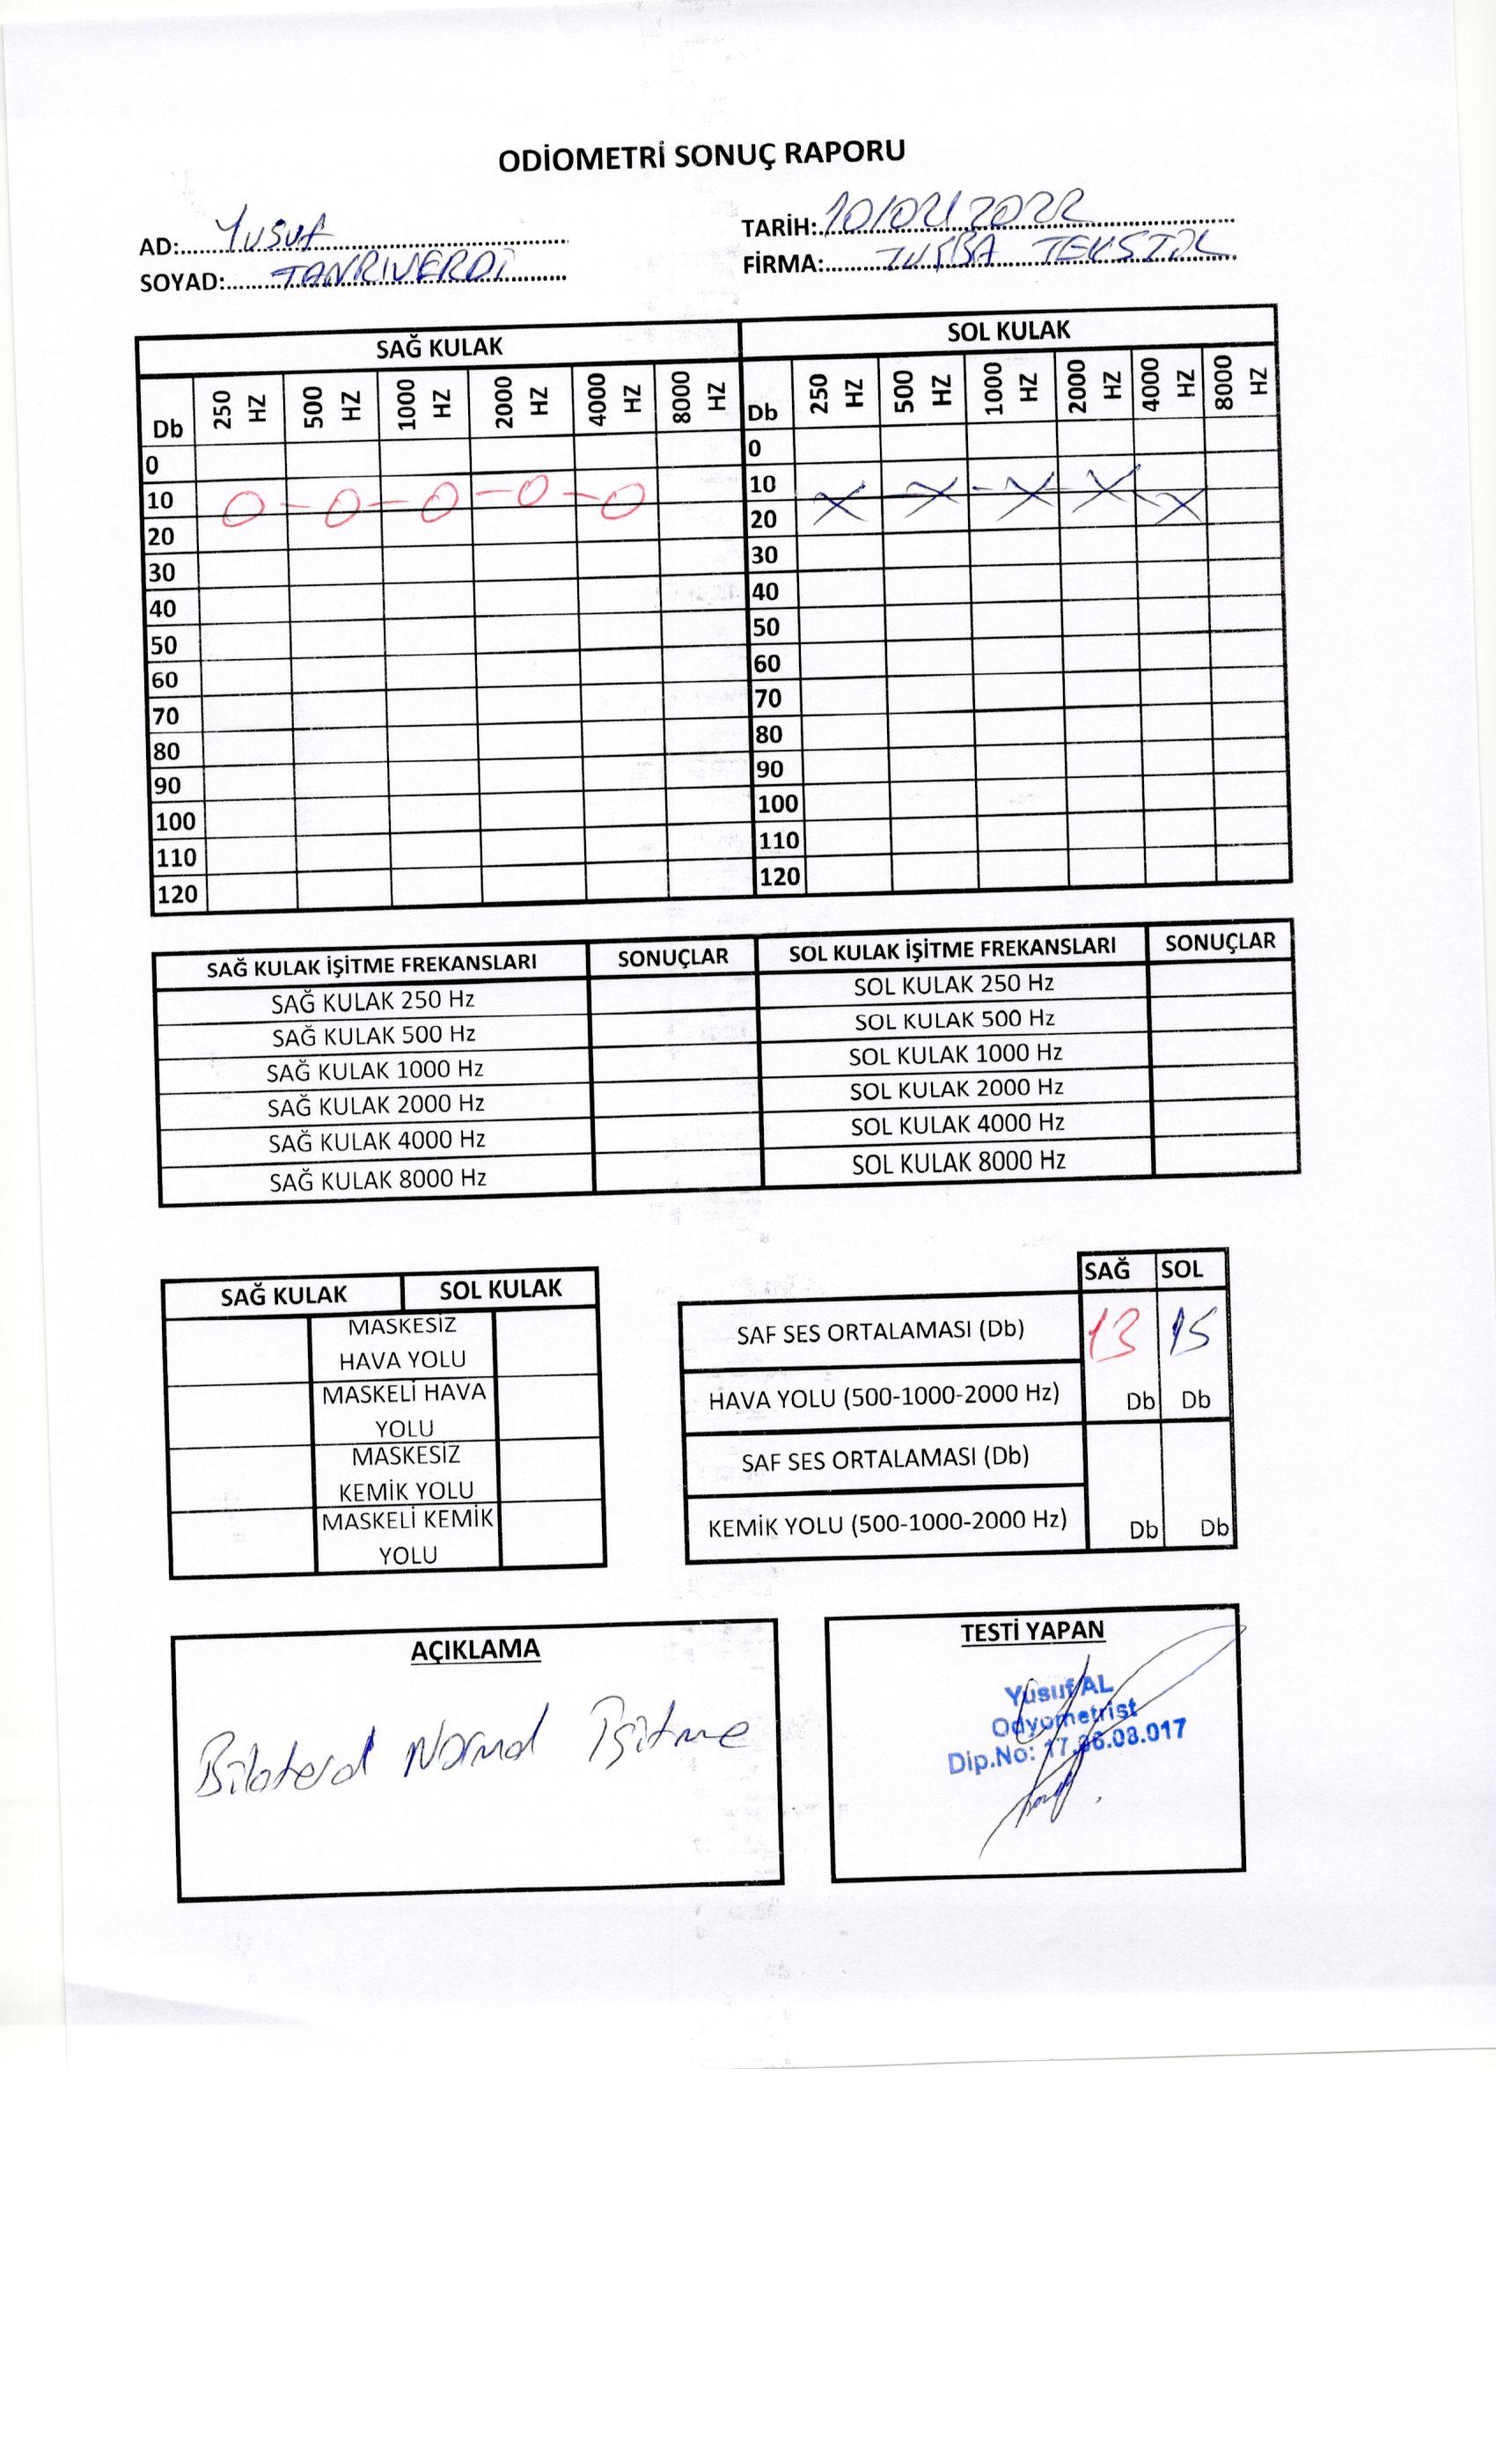 ODİOMETRİ SONUÇ RAPORU
AD: Yusuf
SOYAD: TANRIVERDİ
TARİH: 10/02/2022
FİRMA: TUŞBA TEKSTİL
SAĞ KULAK SOL KULAK
Db 250 HZ 500 HZ 1000 HZ 2000 HZ 4000 HZ 8000 HZ Db 250 HZ 500 HZ 1000 HZ 2000 HZ 4000 HZ 8000 HZ
0 0
10 O-O-O-O-O 10 X-X-X-X-X
20 20
30 30
40 40
50 50
60 60
70 70
80 80
90 90
100 100
110 110
120 120
SAĞ KULAK İŞİTME FREKANSLARI SONUÇLAR SOL KULAK İŞİTME FREKANSLARI SONUÇLAR
SAĞ KULAK 250 Hz SOL KULAK 250 Hz
SAĞ KULAK 500 Hz SOL KULAK 500 Hz
SAĞ KULAK 1000 Hz SOL KULAK 1000 Hz
SAĞ KULAK 2000 Hz SOL KULAK 2000 Hz
SAĞ KULAK 4000 Hz SOL KULAK 4000 Hz
SAĞ KULAK 8000 Hz SOL KULAK 8000 Hz
SAĞ KULAK SOL KULAK
MASKESİZ
HAVA YOLU
MASKELİ HAVA
YOLU
MASKESİZ
KEMİK YOLU
MASKELİ KEMİK
YOLU
SAĞ SOL
SAF SES ORTALAMASI (Db) 13 15
HAVA YOLU (500-1000-2000 Hz) Db Db
SAF SES ORTALAMASI (Db)
KEMİK YOLU (500-1000-2000 Hz) Db Db
AÇIKLAMA
Bilateral Normal İşitme
TESTİ YAPAN
Yusuf AL
Odyometrist
Dip.No: 17.36.03.017